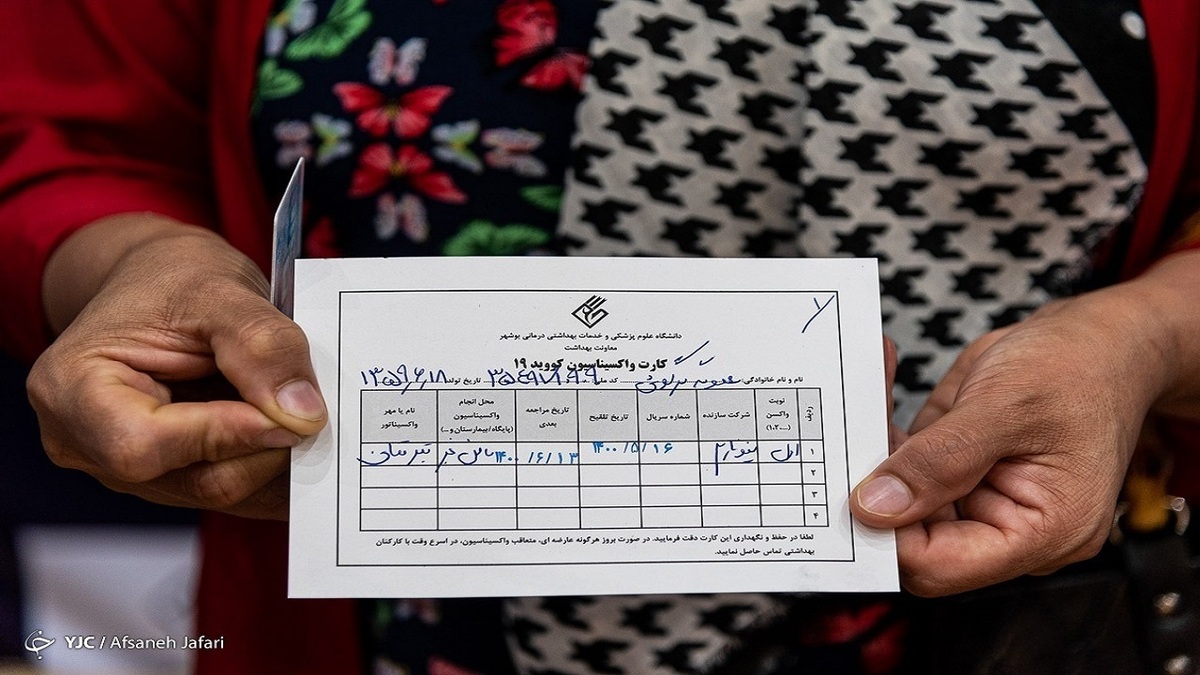 دانشگاه علوم پزشکی و خدمات بهداشتی درمانی بوشهر
معاونت بهداشت
کارت واکسیناسیون کووید ۱۹
نام و نام خانوادگی: کد ملی: تاریخ تولد: ۱۳۵۹/۶/۱۸
ردیف نوبت واکسن (...۱،۲) شرکت سازنده شماره سریال تاریخ تلقیح تاریخ مراجعه بعدی محل انجام واکسیناسیون (پایگاه/بیمارستان و...) نام یا مهر واکسیناتور
۱ اول سینوفارم ۱۴۰۰/۵/۱۶ ۱۴۰۰/۶/۱۳
۲
۳
۴
لطفا در حفظ و نگهداری این کارت دقت فرمایید. در صورت بروز هرگونه عارضه ای، متعاقب واکسیناسیون، در اسرع وقت با کارکنان
بهداشتی تماس حاصل نمایید.
YJC / Afsaneh Jafari